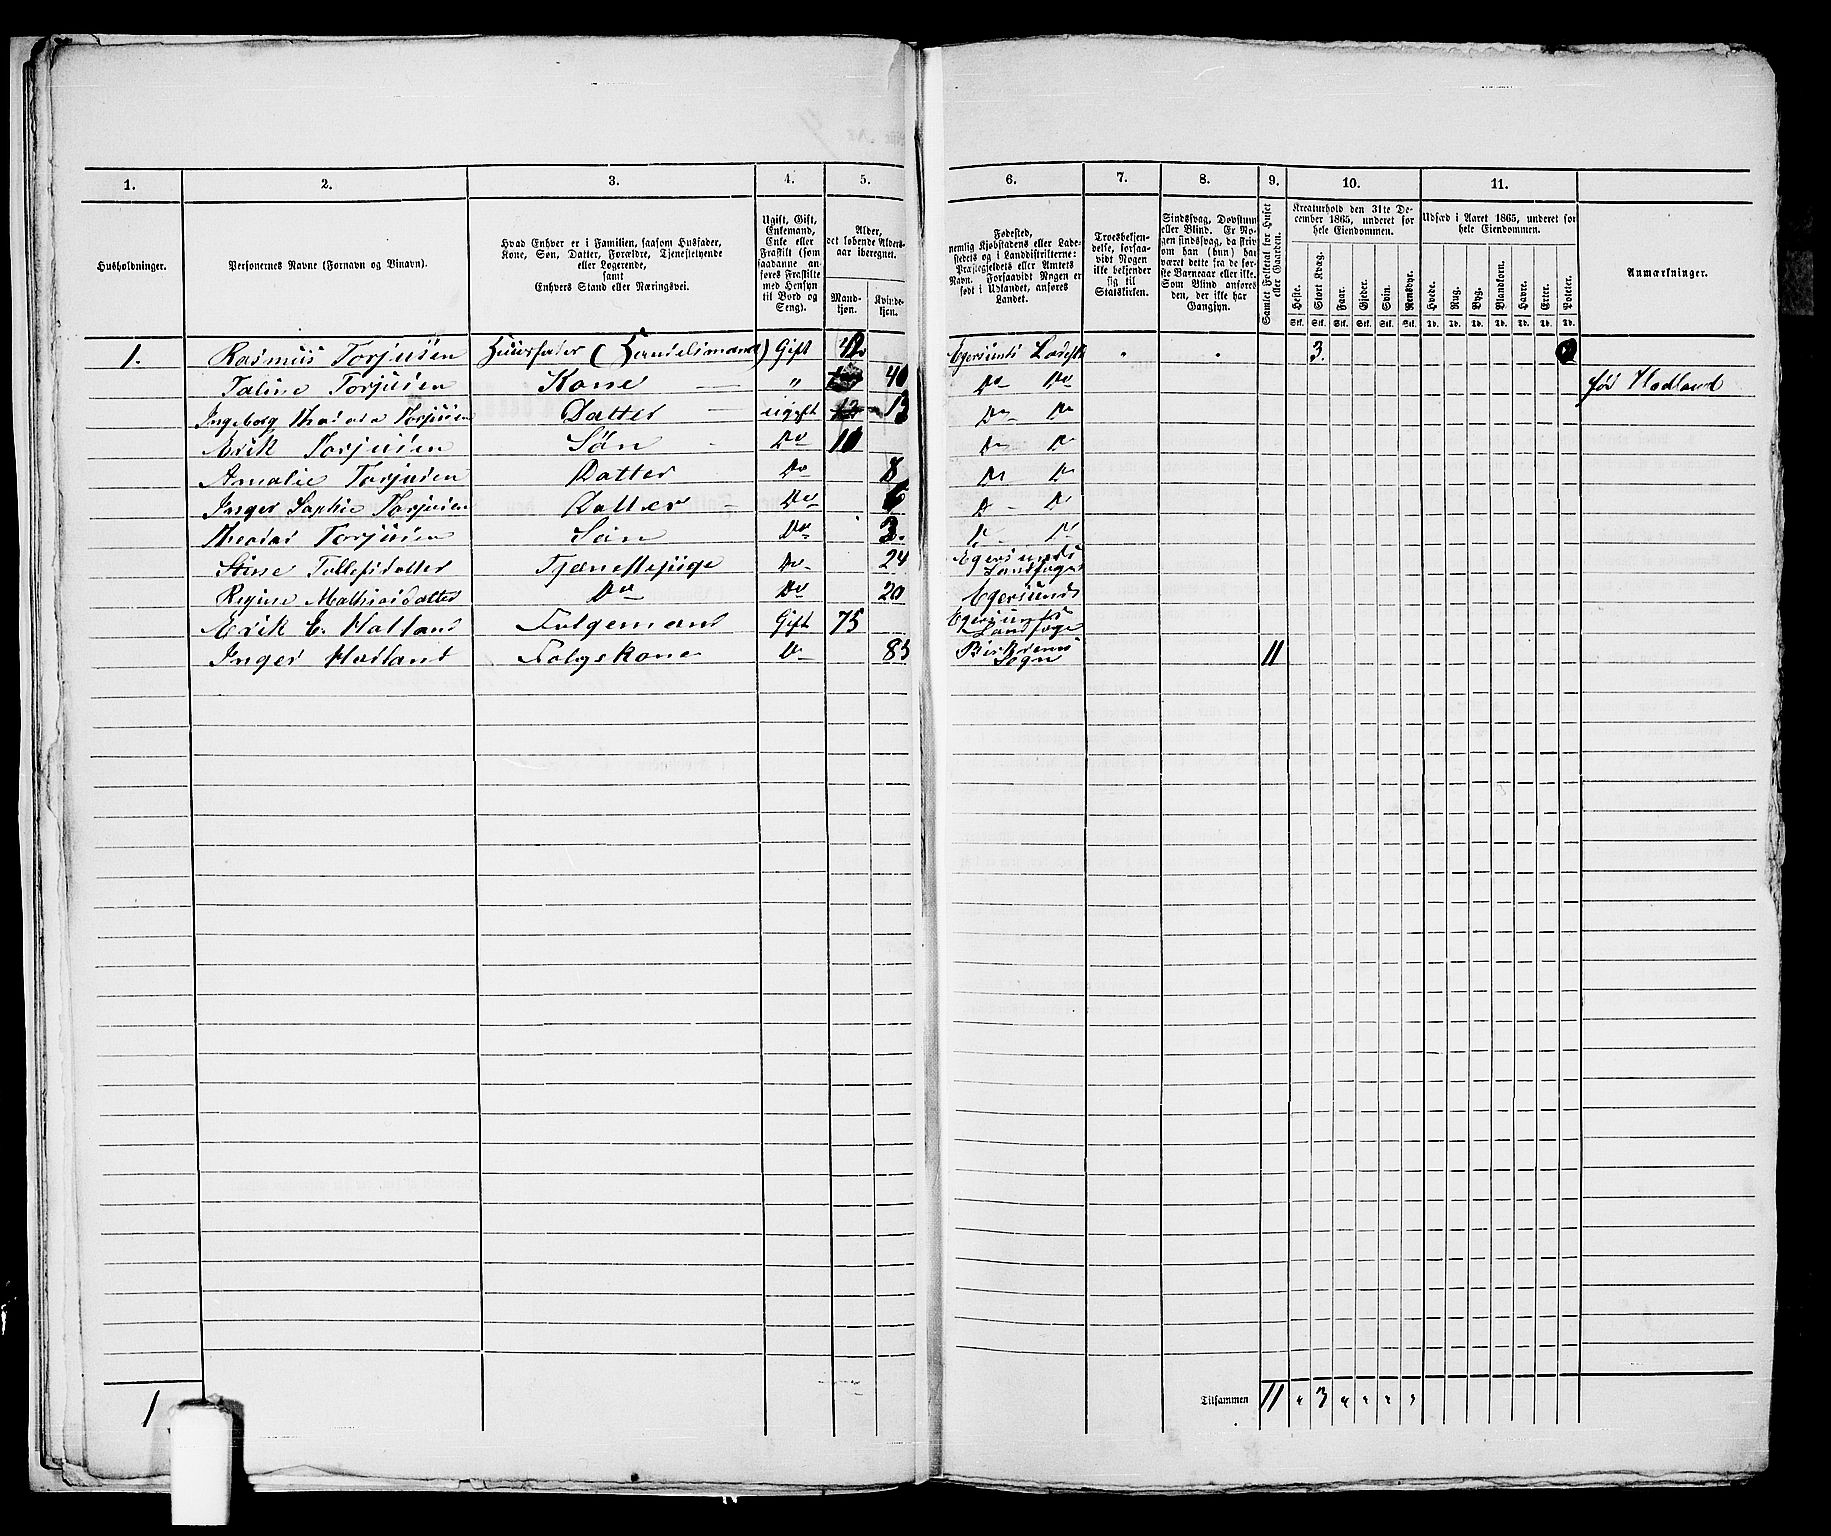 1. 2. 3. 4. 5. 6. 7. 8. 9. 10. 11.
Husholdninger.
Personernes Navne (Fornavn og Binavn).
Hvad Enhver er i Familien, saasom Husfader,
Kone, Søn, Datter, Forældre, Tjenestetyende
eller Logerende,
samt
Enhvers Stand eller Næringsvei.
Ugift, Gift,
Enkemand,
Enke eller
Fraskilt (som
saadanne an-
føres Fraskilte
med Hensyn
til Bord og
Seng).
Alder,
det løbende Alders-
aar iberegnet.
Mand-
kjøn.
Kvinde-
kjøn.
Fødested,
nemlig Kjøbstadens eller Lade-
stedets og i Landdistrikterne:
Præstegjeldets eller Amtets
Navn. Forsaavidt Nogen er
født i Udlandet, anføres
Landet.
Troesbekjen-
delse, forsaa-
vidt Nogen
ikke bekjender
sig til
Statskirken.
Sindssvag, Døvstum
eller Blind. Er No-
gen sindssvag, da hvis
om han (hun) har
været dette fra de før-
ste Barneaar eller ikke.
Som Blind anføres
den, der ikke har
Gangsyn.
Samlet Folketal for Huset
eller Gaarden.
Kreaturhold den 31te De-
cember 1865, underet for
hele Eiendommen.
Heste. Stort Kvæg. Faar. Gjeder. Svin. Rensdyr.
Stk. Stk. Stk. Stk. Stk. Stk.
Udsæd i Aaret 1865, underet for
hele Eiendommen.
Hvede. Rug. Byg. Blandkorn. Havre. Erter. Poteter.
Td. Td. Td. Td. Td. Td. Td.
Anmærkninger.
1. Rasmus Torjusen Huusfader (Handelsmand) Gift 42 Egersunds Ladest. " " 3.
Taline Torjusen Kone — " 40 Do Do fød Hadland
Ingeborg Theodora Torjusen Datter — ugift 13 Do Do
Erik Torjusen Søn Do 10 Do Do
Amalie Torjusen Datter Do 8 Do Do
Inger Sophie Torjusen Datter — Do 6 Do Do
Theodor Torjusen Søn Do 3. Do Do
Stine Tollefsdatter Tjenestepige Do 24 Egersunds Landsogn
Regine Mathiasdatter Do Do 20 Egersunds
Erik E. Hatland Folgemand Gift 75 Egersunds Landsogn
Inger Hadland Folgekone Do 85 Birkrems Sogn 11
1 Tilsammen 11 " 3 " " " "